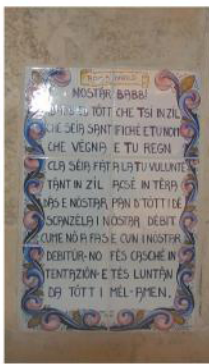 NOSTAR BABB
BABB AD TÓTT CHE T'SI IN ZIL
CHE SEIA SANTIFICHÈ E TU NOM
CHE VEGNA E TU REGN
CLA SÈIA FATA LA TU VULUNTÈ
TANT IN ZIL ACSÈ IN TÈRA
DAS E NOSTAR PAN D TÓTT I DÈ
SCANZÈLA I NOSTAR DÈBIT
CUME NÓ A FAS E CUN I NOSTAR
DEBITÚR-NO FÈS CASCHÈ IN
TENTAZIÓN-E TÈS LUNTÀN
DA TÓTT I MÈL-AMEN.